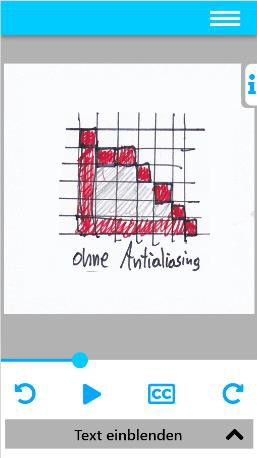 ohne Antialiasing
CC
Text einblenden